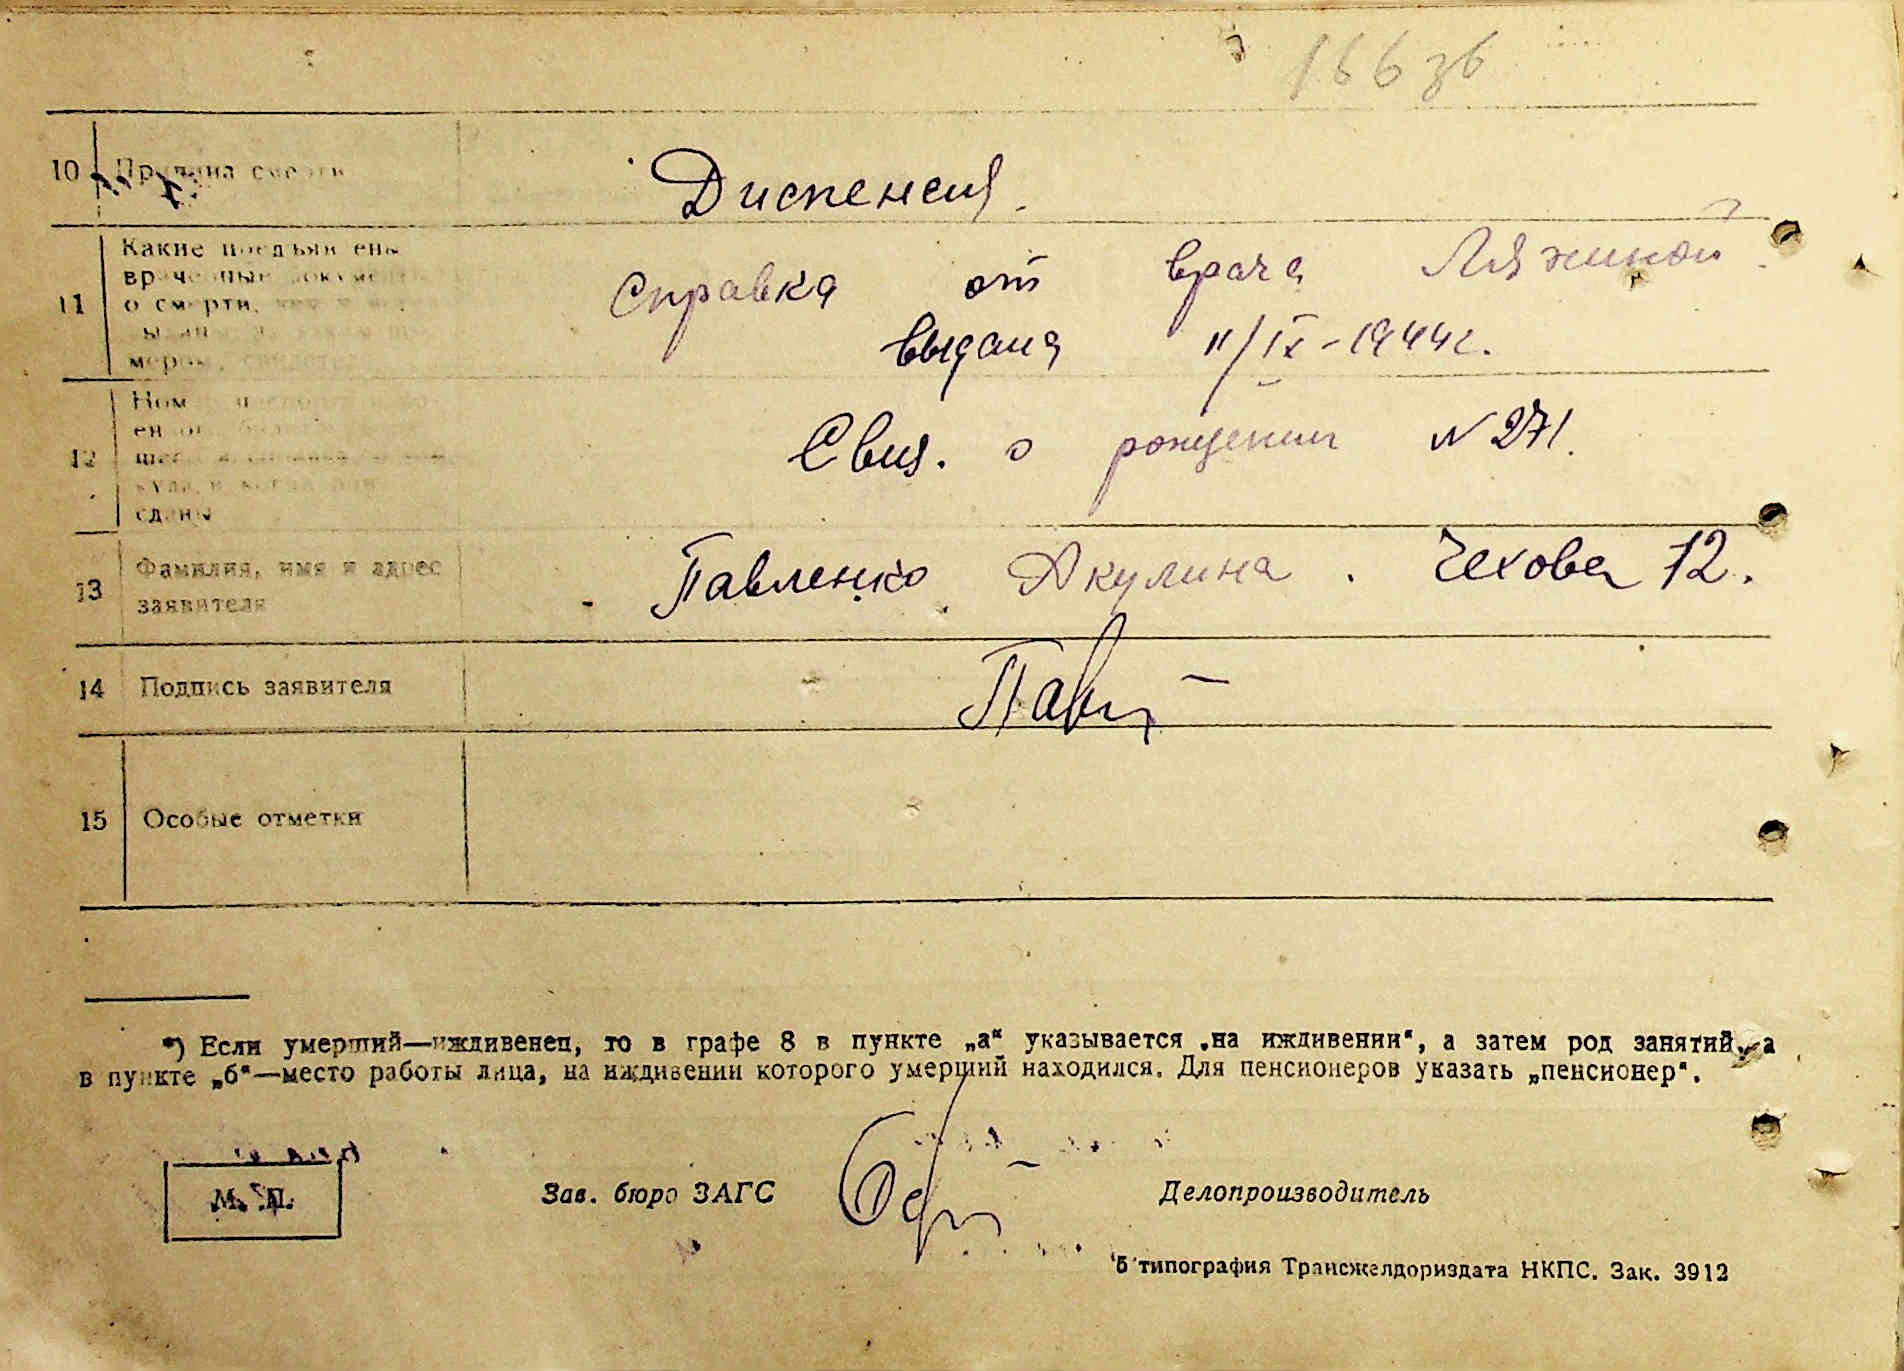 166 зб
10 Причина смерти Диспенсия.
11 Какие предъявлены
врачебные документы
о смерти,
Справка от врача Ляжиной
выдана 11/IX-1944г.
12 Номер
сданы
Свид. о рождении N 271.
13 Фамилия, имя и адрес
заявителя
Павленко Акулина. Чехова 12.
14 Подпись заявителя Павл
15 Особые отметки
*) Если умерший—иждивенец, то в графе 8 в пункте „а“ указывается „на иждивении“, а затем род занятий, а
в пункте „б“—место работы лица, на иждивении которого умерший находился. Для пенсионеров указать „пенсионер“.
М. П.
Зав. бюро ЗАГС
Делопроизводитель
5 типография Трансжелдориздата НКПС. Зак. 3912